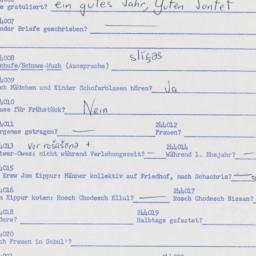 e gratuliert? ein gutes Jahr, guten Jontef
4007
nder Briefe geschrieben? —
4008 sliχəs
chufe/Schawe-Wuch (Aussprache)
4009
ch Mädchen und Kinder Schofarblasen hören? Ja
4010
ause für Frühstück? Nein
4011 244012
argenes getragen? — Frauen?
4013 vor 244014
lwer-Gwez: nicht während Verlobungszeit? — Während 1. Ehejahr? —
4015
Erew Jom Kippur: Männer kollektiv auf Friedhof, nach Schachris?
4016 244017
m Kippur koten: Rosch Chodesch Ellul? — Rosch Chodesch Nissan?
4018 244019
dere? Halbtags gefastet?
4020
ch Frauen in Schul'?
244022